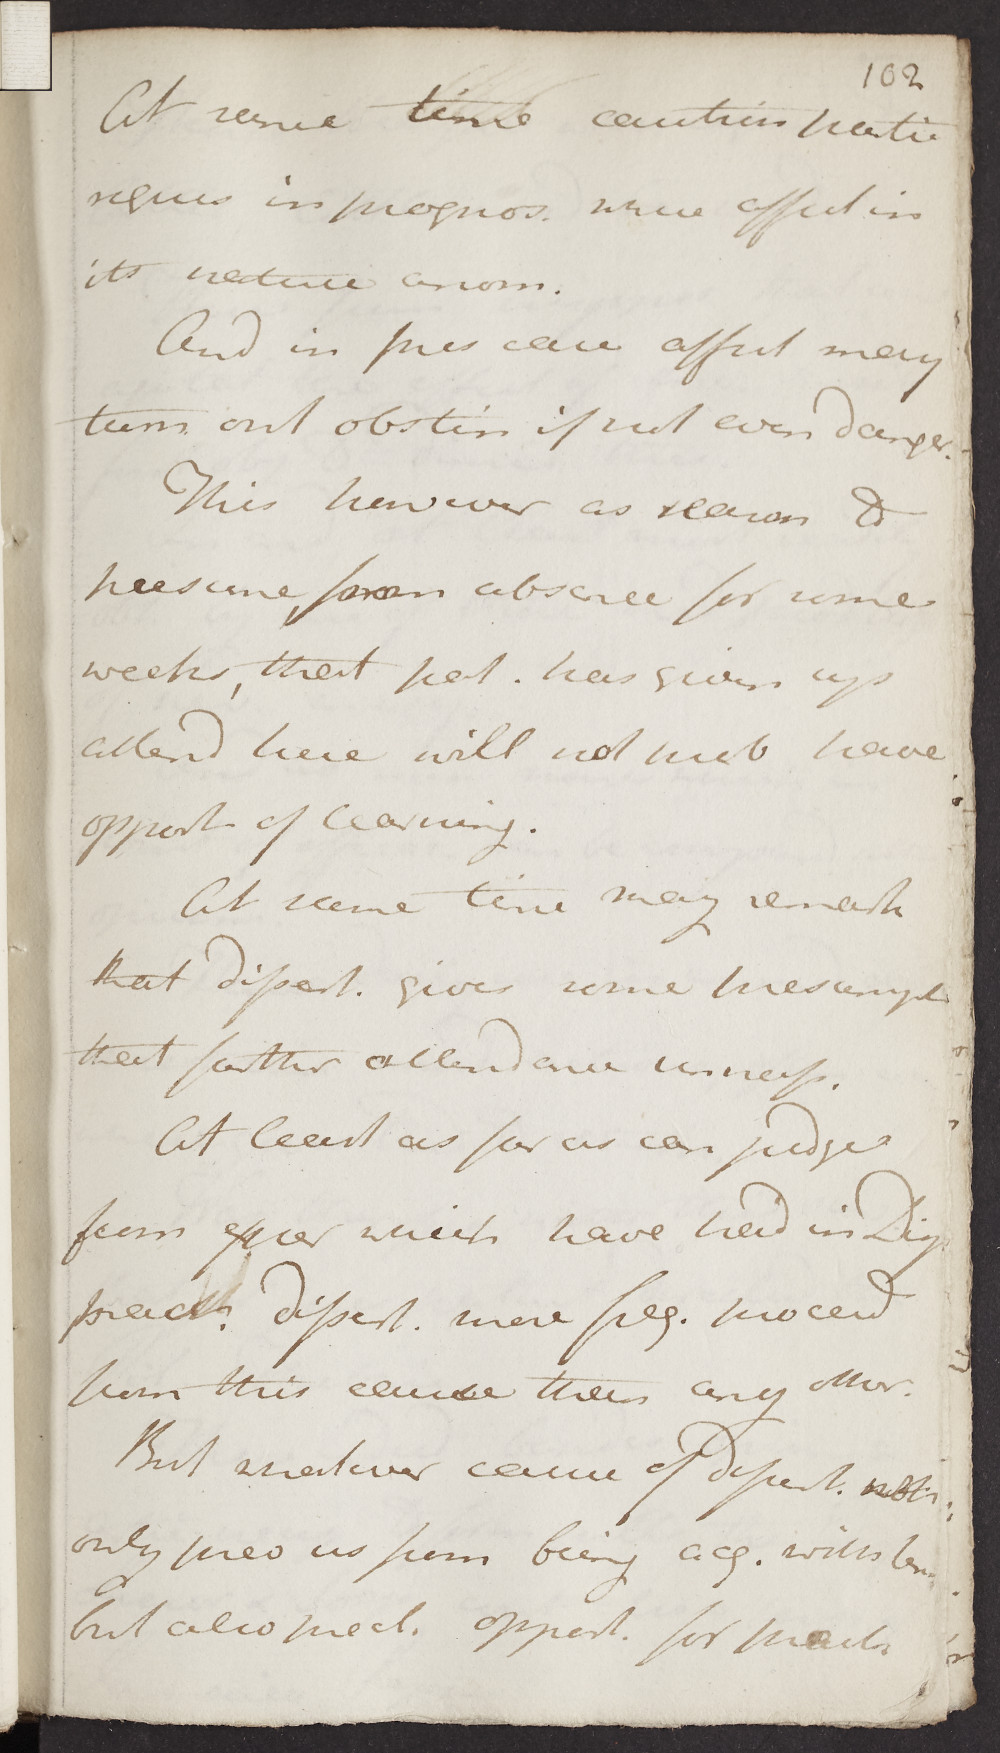 102
At same time caution partic
requis in prognos. where affect in
its nature anom.
And in pres case affect may
turn out obstin if not even danger.
This however as reason to
presume, from absence for some
weeks, that pat. has given up
attend here will not prob have
opport of learning.
At same time may remark
that disart. gives some presumpt
that farther attendance unness.
At least as far as can judge
from exper which have had in Dis
pract. disert. more freq. proceed
from this cause than any other.
But whatever cause of disert. not
only prev us from being acq. with
but also precl. opport. for pract.